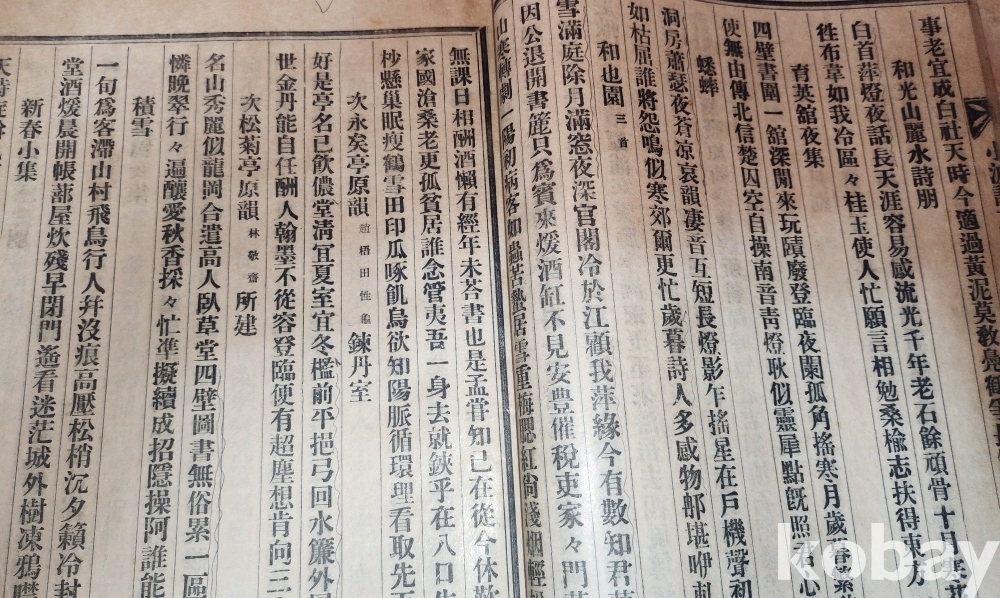 事老宜成白社天時今適過黃泥莫教
和光山麗水詩朋
白首萍燈夜話長天涯容易感流光千年老石餘頑骨十月寒花
徃布韋如我冷區々桂玉使人忙願言相勉桑楡志扶得東方
育英館夜集
四壁書圍一館深閒來玩蹟廢登臨夜闌孤角搖寒月歲暮繁
使無由傳北信楚囚空自操南音靑燈耿似靈犀點旣照君心
蟋蟀
洞房蕭瑟夜蒼凉哀韻凄音互短長燈影乍搖星在戶機聲初
如枯屈誰將怨鳴似寒郊爾更忙歲暮詩人多感物郍堪咿
和也園 三首
雪滿庭除月滿窓夜深官閣冷於江顧我萍緣今有數知君
因公退開書簏只爲賓來煖酒缸不見安豊催稅吏家々門
一陽初病客如蟲苦蟄居雪重梅腮紅尙淺烟輕
無課日相酬酒懶有經年未答書也是孟甞知已在從今休歎
家國滄桑老更孤貧居誰念管夷吾一身去就鋏乎在八口生
杪懸巢眠瘦鶴雪田印瓜啄飢烏欲知陽脈循環理看取先
次永矣亭原韻 趙梧田性 鍊丹室
好是亭名已飮儂堂淸宜夏室宜冬檻前平挹弓回水簾外
世金丹能自任酬人翰墨不從容登臨便有超塵想肯向三
次松菊亭原韻 林敬齋 所建
名山秀麗似龍岡合遺高人臥草堂四壁圖書無俗累一區
憐晩翠行々遍釀愛秋香採々忙準擬續成招隱操阿誰能
積雪
一旬爲客滯山村飛鳥行人幷沒痕高壓松梢沉夕籟冷封
堂酒煖晨開帳蔀屋炊殘早閉門遙看迷茫城外樹凍鴉噤
新春小集
kobay